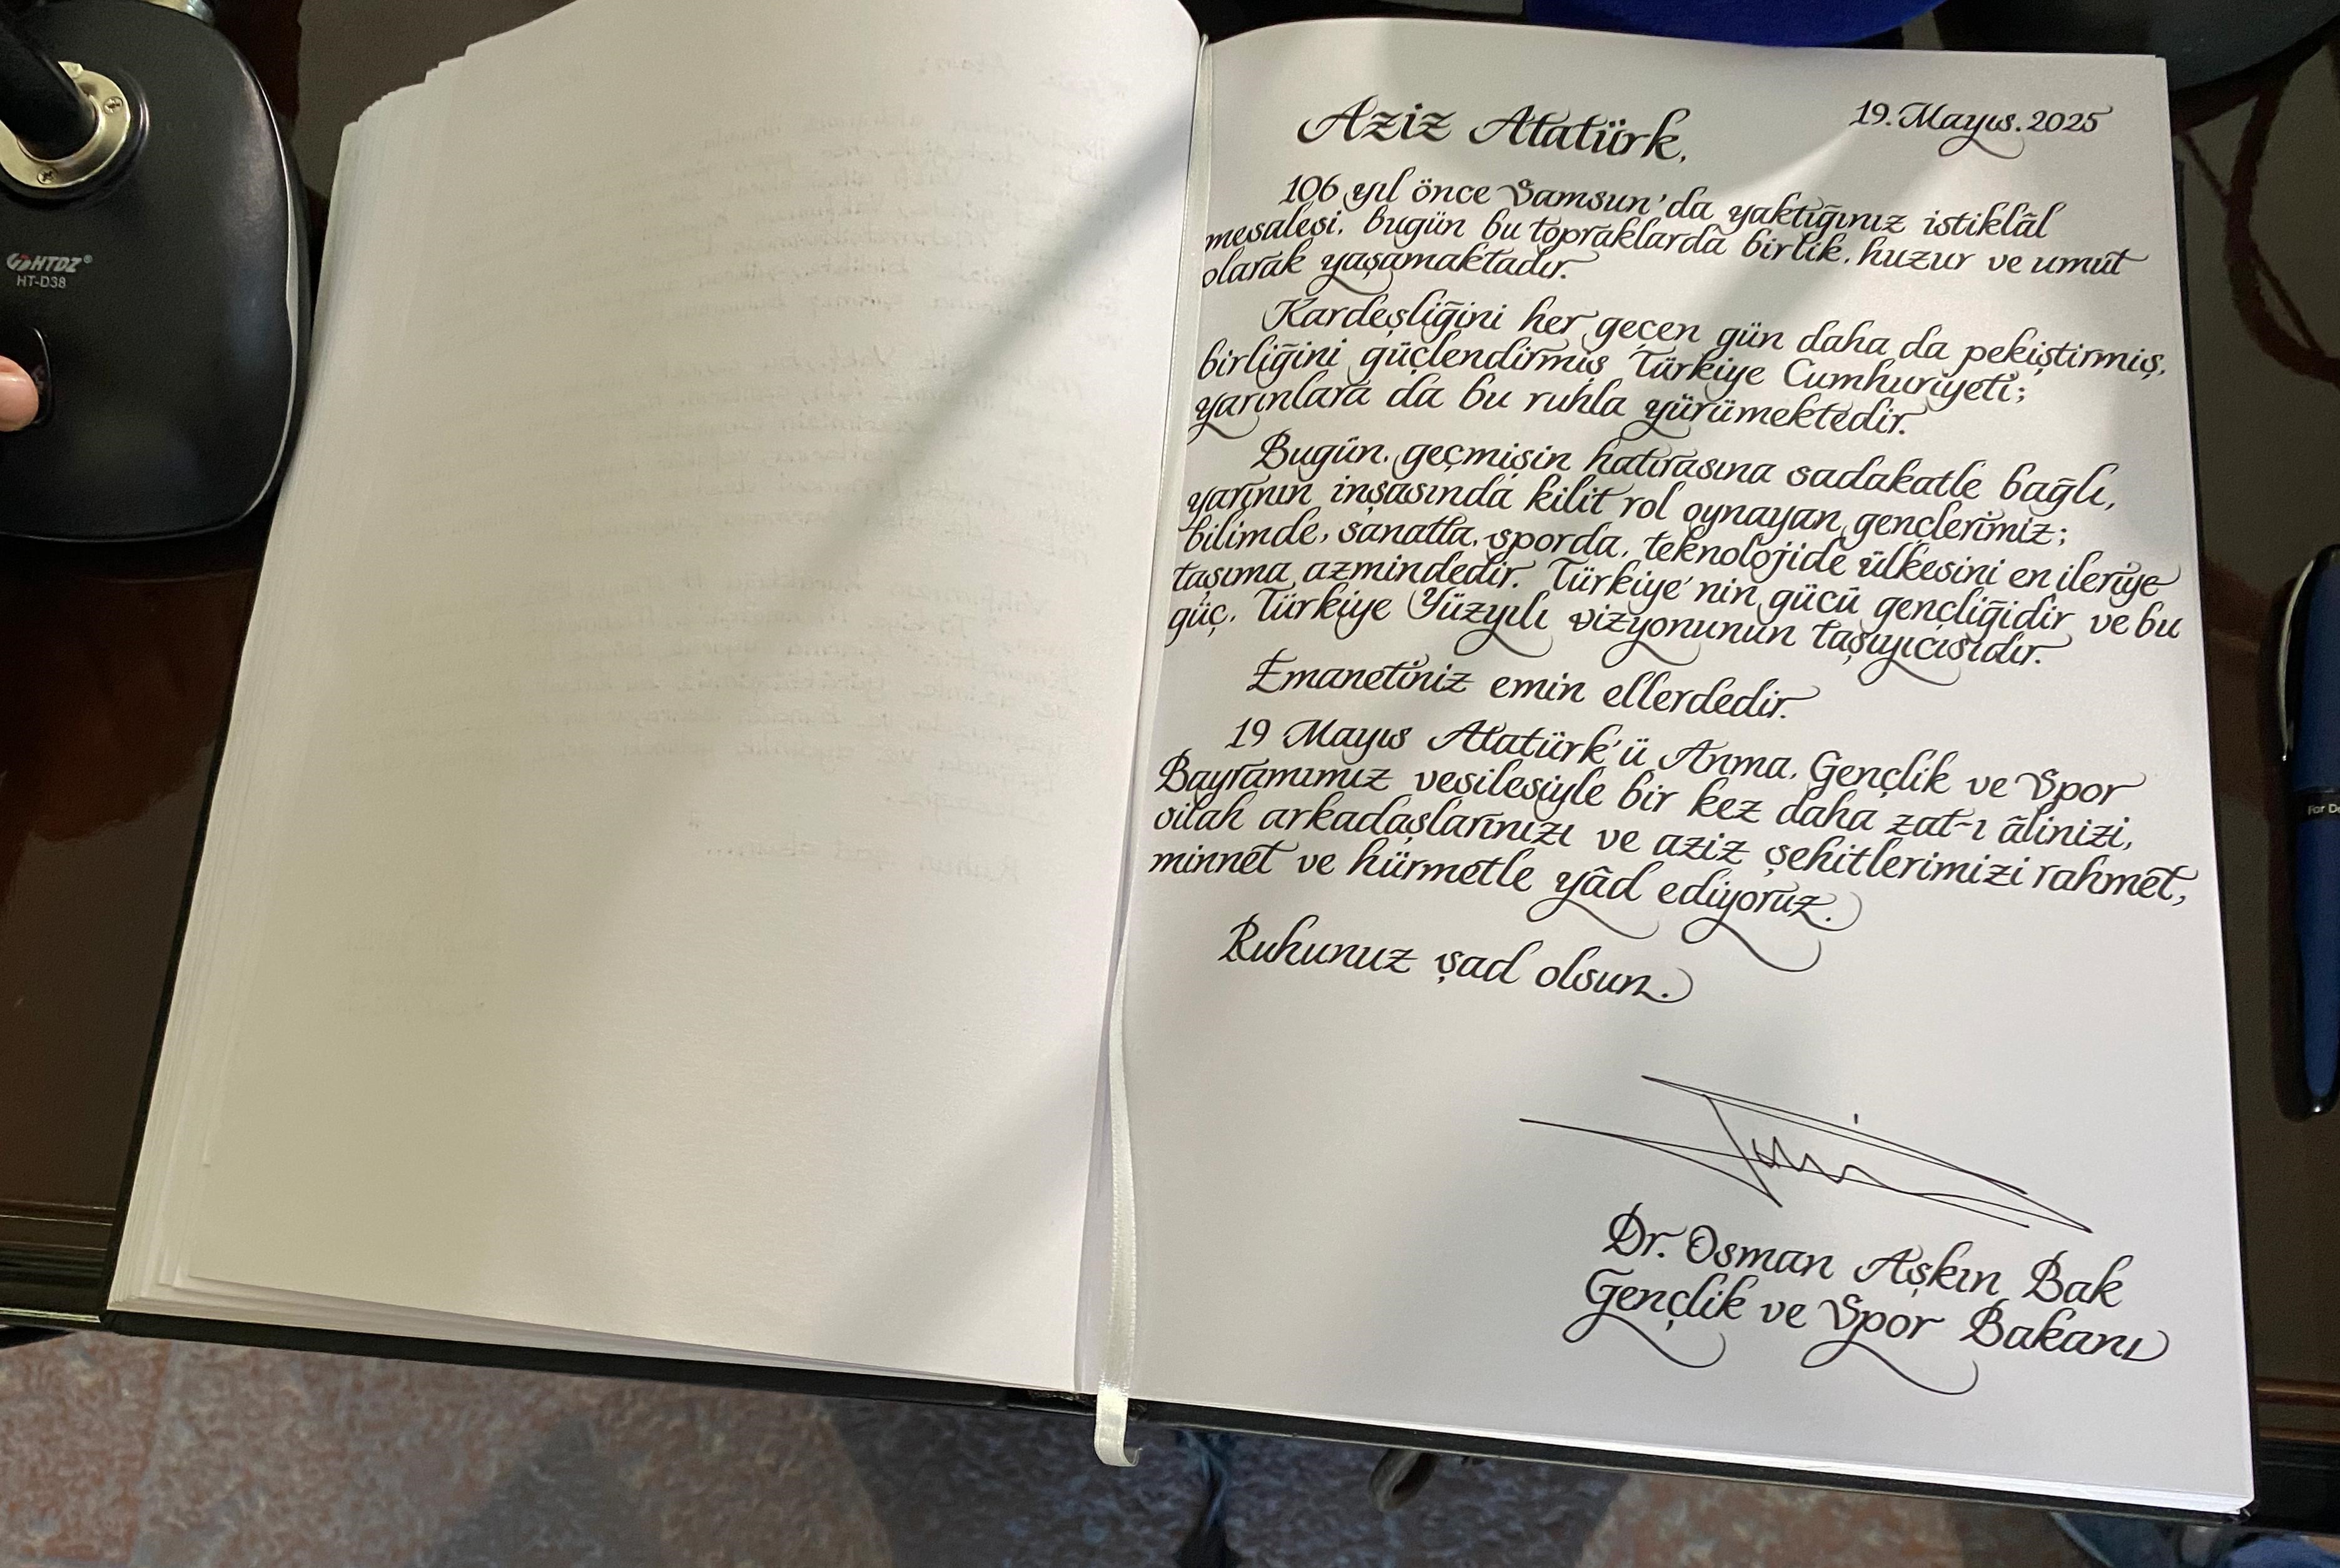 HTDZ®
HT-D38
Aziz Atatürk,
19.Mayıs.2025
106 yıl önce Samsun'da yaktığınız istiklâl
meşalesi, bugün bu topraklarda birlik, huzur ve umut
olarak yaşamaktadır.
Kardeşliğini her geçen gün daha da pekiştirmiş,
birliğini güçlendirmiş Türkiye Cumhuriyeti;
yarınlara da bu ruhla yürümektedir.
Bugün, geçmişin hatırasına sadakatle bağlı,
yarının inşasında kilit rol oynayan gençlerimiz;
bilimde, sanatta, sporda, teknolojide ülkesini en ileriye
taşıma azmindedir. Türkiye'nin gücü gençliğidir ve bu
güç, Türkiye Yüzyılı vizyonunun taşıyıcısıdır.
Emanetiniz emin ellerdedir.
19 Mayıs Atatürk'ü Anma, Gençlik ve Spor
Bayramımız vesilesiyle bir kez daha zat-ı âlinizi,
silah arkadaşlarınızı ve aziz şehitlerimizi rahmet,
minnet ve hürmetle yâd ediyoruz.
Ruhunuz şad olsun.
Dr. Osman Aşkın Bak
Gençlik ve Spor Bakanı